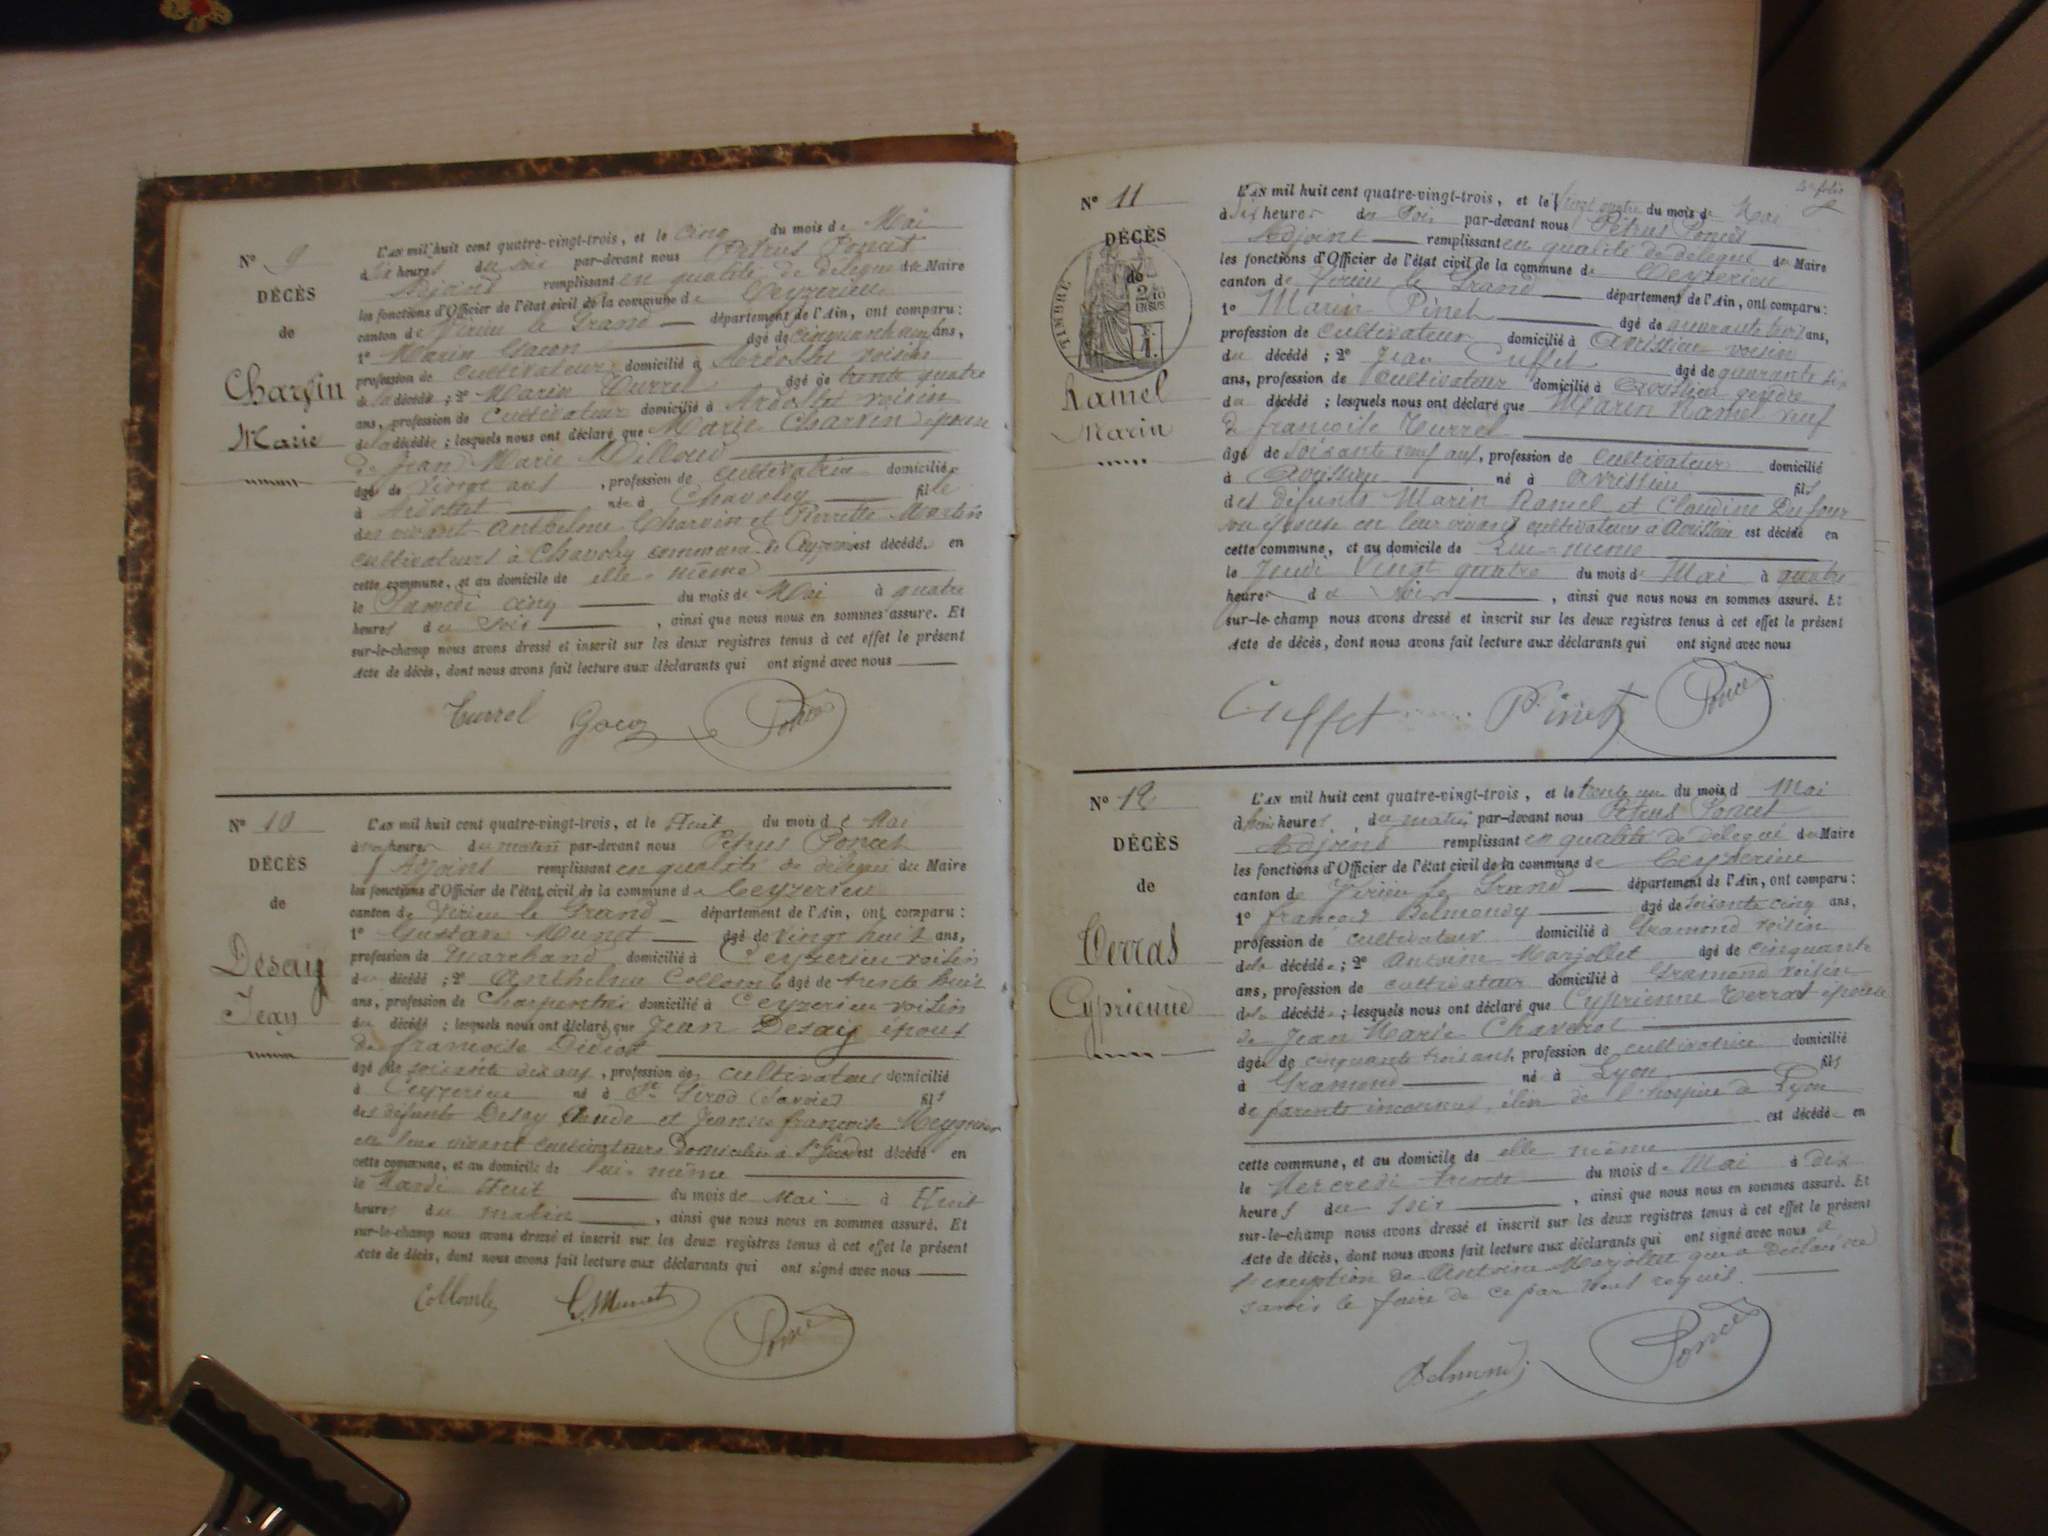 N° 9
DÉCÈS
de
Charvin
Marie
L'AN mil huit cent quatre-vingt-trois, et le cinq du mois de Mai
à six heures du soir par-devant nous Petrus Poncet
Adjoint remplissant en qualité de délégué du Maire
les fonctions d'Officier de l'état civil de la commune de Ceyzerieu
canton de Virieu le Grand département de l'Ain, ont comparu :
1° Marin Gacon âgé de cinquante neuf ans,
profession de cultivateur domicilié à Ardosset voisin
de la décédée ; 2° Marin Turrel âgé de trente quatre
ans, profession de cultivateur domicilié à Ardosset voisin
de la décédée ; lesquels nous ont déclaré que Marie Charvin épouse
de Jean Marie Milloud
âgée de vingt ans, profession de cultivatrice domiciliée
à Ardosset née à Chavoley fille
des vivant Anthelme Charvin et Pierrette Martin
cultivateurs à Chavoley commune de Ceyzerieu est décédée en
cette commune, et au domicile de elle-même
le Samedi cinq du mois de Mai à quatre
heures du soir, ainsi que nous nous en sommes assuré. Et
sur-le-champ nous avons dressé et inscrit sur les deux registres tenus à cet effet le présent
Acte de décès, dont nous avons fait lecture aux déclarants qui ont signé avec nous
Turrel Gacon Poncet
N° 10
DÉCÈS
de
Desay
Jean
L'AN mil huit cent quatre-vingt-trois, et le Huit du mois de Mai
à heures du matin par-devant nous Petrus Poncet
Adjoint remplissant en qualité de délégué du Maire
les fonctions d'Officier de l'état civil de la commune de Ceyzerieu
canton de Virieu le Grand département de l'Ain, ont comparu :
1° Gustave Munet âgé de vingt huit ans,
profession de Marchand domicilié à Ceyzerieu voisin
du décédé ; 2° Anthelme Collomb âgé de trente huit
ans, profession de charpentier domicilié à Ceyzerieu voisin
du décédé ; lesquels nous ont déclaré que Jean Desay époux
de françoise Didier
âgé de soixante dix ans, profession de cultivateur domicilié
à Ceyzerieu né à St Girod (Savoie) fils
des défunts Desay Claude et Jeanne françoise Meynier
en leur vivant cultivateurs domiciliés à St Girod est décédé en
cette commune, et au domicile de lui-même
le Mardi Huit du mois de Mai à Huit
heures du matin, ainsi que nous nous en sommes assuré. Et
sur-le-champ nous avons dressé et inscrit sur les deux registres tenus à cet effet le présent
Acte de décès, dont nous avons fait lecture aux déclarants qui ont signé avec nous
Collomb G. Munet Poncet
folio
N° 11
DÉCÈS
de
TIMBRE
2/10
EN SUS
Ramel
Marin
L'AN mil huit cent quatre-vingt-trois, et le vingt quatre du mois de Mai
à six heures du soir par-devant nous Petrus Poncet
Adjoint remplissant en qualité de délégué du Maire
les fonctions d'Officier de l'état civil de la commune de Ceyzerieu
canton de Virieu le Grand département de l'Ain, ont comparu :
1° Marin Pinet âgé de quarante trois ans,
profession de cultivateur domicilié à Avrissieu voisin
du décédé ; 2° Jean Cuffet âgé de quarante six
ans, profession de cultivateur domicilié à Avrissieu gendre
du décédé ; lesquels nous ont déclaré que Marin Ramel veuf
de françoise Turrel
âgé de soixante neuf ans, profession de cultivateur domicilié
à Avrissieu né à Avrissieu fils
des défunts Marin Ramel et Claudine Dufour
son épouse en leur vivant cultivateurs à Avrissieu est décédé en
cette commune, et au domicile de lui-même
le Jeudi vingt quatre du mois de Mai à quatre
heures du soir, ainsi que nous nous en sommes assuré. Et
sur-le-champ nous avons dressé et inscrit sur les deux registres tenus à cet effet le présent
Acte de décès, dont nous avons fait lecture aux déclarants qui ont signé avec nous
Cuffet Pinet Poncet
N° 12
DÉCÈS
de
Terras
Cyprienne
L'AN mil huit cent quatre-vingt-trois, et le trente un du mois d Mai
à heures du matin par-devant nous Petrus Poncet
Adjoint remplissant en qualité de délégué du Maire
les fonctions d'Officier de l'état civil de la commune de Ceyzerieu
canton de Virieu le Grand département de l'Ain, ont comparu :
1° françois Belmondy âgé de soixante cinq ans,
profession de cultivateur domicilié à Gramond voisin
de la décédée ; 2° Antoine Marjollet âgé de cinquante
ans, profession de cultivateur domicilié à Gramond voisin
de la décédée ; lesquels nous ont déclaré que Cyprienne Terras épouse
de Jean Marie Chaverot
âgée de cinquante trois ans, profession de cultivatrice domicilié
à Gramond né à Lyon fils
de parents inconnus, élève de l'hospice de Lyon
est décédée en
cette commune, et au domicile de elle même
le Mercredi trente du mois de Mai à dix
heures du soir, ainsi que nous nous en sommes assuré. Et
sur-le-champ nous avons dressé et inscrit sur les deux registres tenus à cet effet le présent
Acte de décès, dont nous avons fait lecture aux déclarants qui ont signé avec nous à
l'exception de Antoine Marjollet qui a déclaré ne
savoir le faire de ce par nous requis.
Belmondy Poncet